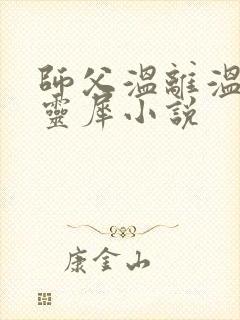 師父溫離溫
靈犀小說
康金山